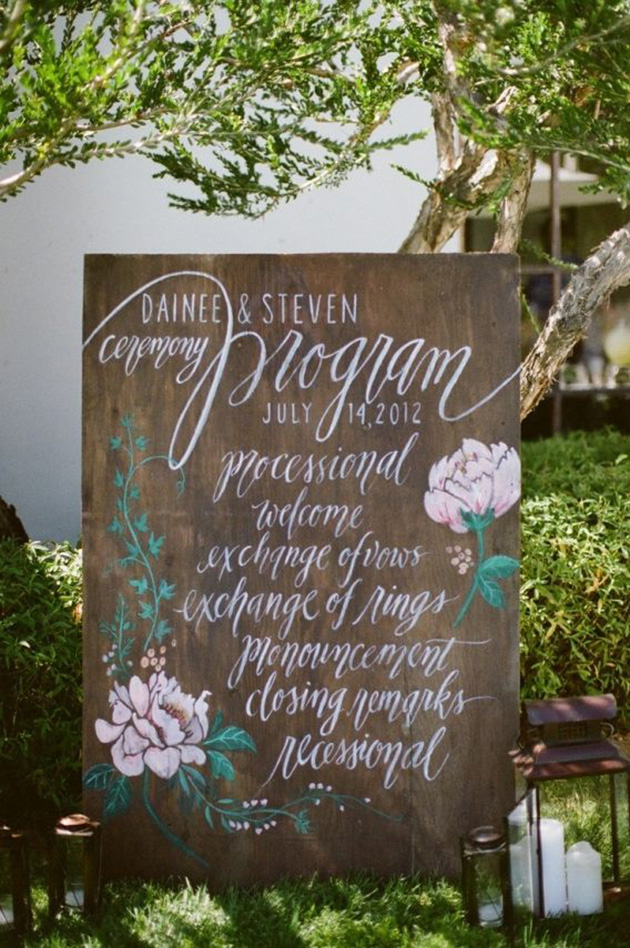 DAINEE & STEVEN
ceremony program
JULY 14, 2012
processional
welcome
exchange of vows
exchange of rings
pronouncement
closing remarks
recessional